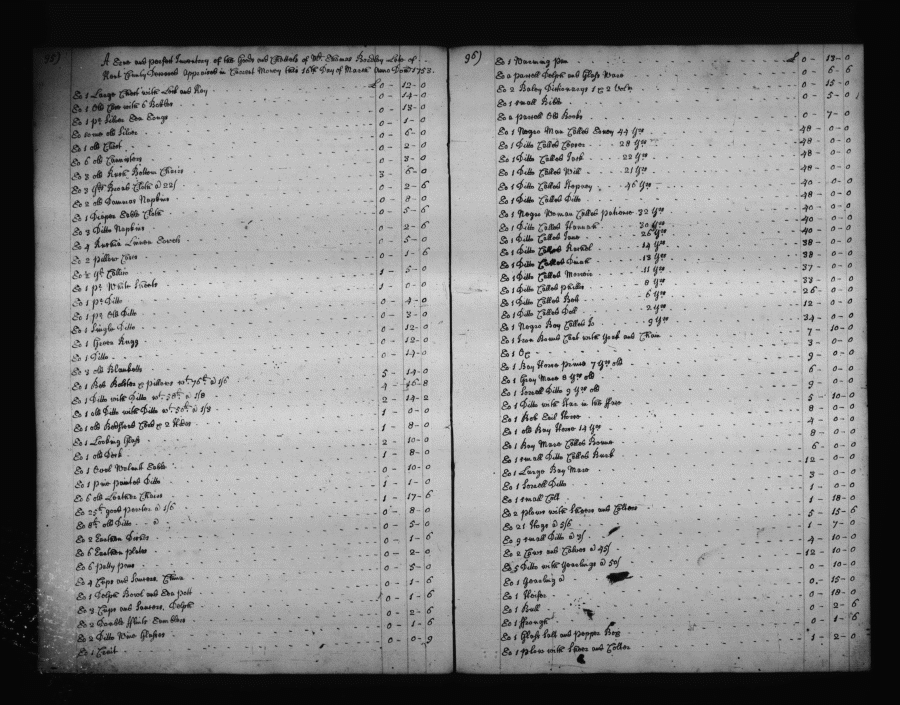 95)
A True and perfect Inventory of the Goods and Chattels of Mr. Thomas Bradley Late of
Kent County Deceased Appraised in Current Money this 16th Day of March Anno Dom 1753
To 1 Large Chest with Lock and Key £0 - 12 - 0
To 1 Old with 6 Bottles 0 - 14 - 0
To 1 pr. Silver Tea Tongs 0 - 13 - 0
To some old Silver 0 - 1 - 0
To 1 old Chest 0 - 6 - 0
To 6 old 0 - 2 - 0
To 3 old Rush Bottom Chairs 0 - 3 - 0
To 3 yds Broad Cloth @ 22/ 3 - 6 - 0
To 2 old Damask Napkins 0 - 2 - 6
To 1 Diaper Table Cloth 0 - 8 - 0
To 3 Ditto Napkins 0 - 5 - 6
To 4 Linnen Towels 0 - 2 - 6
To 2 pillow Cases 0 - 5 - 0
To yd. 0 - 1 - 6
To 1 pr. White Sheets 1 - 5 - 0
To 1 pr. Ditto 1 - 0 - 0
To 1 pr. Old Ditto 0 - 4 - 0
To 1 Single Ditto 0 - 3 - 0
To 1 Green Rugg 0 - 12 - 0
To 1 Ditto 0 - 12 - 0
To 3 old Blanketts 0 - 14 - 0
To 1 Bed Bolster & pillows wt. 76 lb @ 1/6 5 - 14 - 0
To 1 Ditto with Ditto wt. 58 lb @ 1/8 4 - 16 - 8
To 1 old Ditto with Ditto wt. 50 lb @ 2 - 14 - 2
To 1 old Bedstead Cord & 2 Hides 1 - 0 - 0
To 1 Looking Glass 1 - 8 - 0
To 1 old Desk 2 - 10 - 0
To 1 Oval Walnut Table 1 - 8 - 0
To 1 painted Ditto 0 - 10 - 0
To 6 old Leather Chairs 1 - 1 - 0
To 25 lb good pewter @ 1/6 1 - 17 - 6
To 8 lb old Ditto @ 0 - 8 - 0
To 2 Earthen Dishes 0 - 5 - 0
To 6 Earthen plates 0 - 1 - 6
To 6 Patty pans 0 - 2 - 0
To 4 Cups and Saucers China 0 - 5 - 0
To 1 Delph Bowl and Tea pott 0 - 1 - 6
To 3 Cups and Saucers Delph 0 - 1 - 6
To 2 Double flint Tumblers 0 - 2 - 6
To 2 Ditto Wine Glasses 0 - 1 - 6
To 1 Cruit 0 - 0 - 9
96)
To 1 Warming Pan £ 0 - 13 - 0
To a parcell Delph and Glass Ware 0 - 6 - 6
To 2 Baley Dictionarys 1 & 2 Voln 0 - 15 - 0
To 1 small Bible 0 - 5 - 0
To a parcell Old Books 0 - 7 - 0
To 1 Negro Man Called 44 Yrs 48 - 0 - 0
To 1 Ditto Called 28 Yrs 48 - 0 - 0
To 1 Ditto Called Jack 22 Yrs 48 - 0 - 0
To 1 Ditto Called Will 21 Yrs 48 - 0 - 0
To 1 Ditto Called 46 Yrs 40 - 0 - 0
To 1 Ditto Called Ditto 48 - 0 - 0
To 1 Negro Woman Called Patience 32 Yrs 40 - 0 - 0
To 1 Ditto Called Hannah 30 Yrs 40 - 0 - 0
To 1 Ditto Called Jane 26 Yrs 40 - 0 - 0
To 1 Ditto Called Rachel 14 Yrs 38 - 0 - 0
To 1 Ditto Called Dinah 13 Yrs 38 - 0 - 0
To 1 Ditto Called 11 Yrs 37 - 0 - 0
To 1 Ditto Called Phillis 8 Yrs 33 - 0 - 0
To 1 Ditto Called Bob 6 Yrs 26 - 0 - 0
To 1 Ditto Called Doll 2 Yrs 12 - 0 - 0
To 1 Negro Boy Called Jo 9 Yrs 34 - 0 - 0
To 1 Iron Bound Cart with York and Chain 7 - 10 - 0
To 1 Ox 3 - 0 - 0
To 1 Bay Horse Prince 7 Yrs old 9 - 0 - 0
To 1 Gray Mare 8 Yrs old 6 - 0 - 0
To 1 Sorrell Ditto 9 Yrs old 9 - 0 - 0
To 1 Ditto with Star in his fface 5 - 10 - 0
To 1 Bob Tail Horse 8 - 0 - 0
To 1 old Bay Horse 14 Yrs 4 - 0 - 0
To 1 Bay Mare Called Bonne 8 - 0 - 0
To 1 small Ditto Called 6 - 0 - 0
To 1 Large Bay Mare 12 - 0 - 0
To 1 Sorrell Ditto 3 - 0 - 0
To 1 small Colt 1 - 0 - 0
To 2 plows with and 1 - 18 - 0
To 21 Hogs @ 5/6 5 - 15 - 6
To 9 small Ditto @ 3/ 1 - 7 - 0
To 2 Cows and Calves @ 45/ 4 - 10 - 0
To 5 Ditto with Yearlings @ 50/ 12 - 10 - 0
To 1 Yearling @ 0 - 15 - 0
To 1 Heifer 0 - 18 - 0
To 1 Bull 0 - 2 - 6
To 1 0 - 1 - 6
To 1 Glass Salt and Pepper Box
To 1 plow with and 1 - 2 - 0